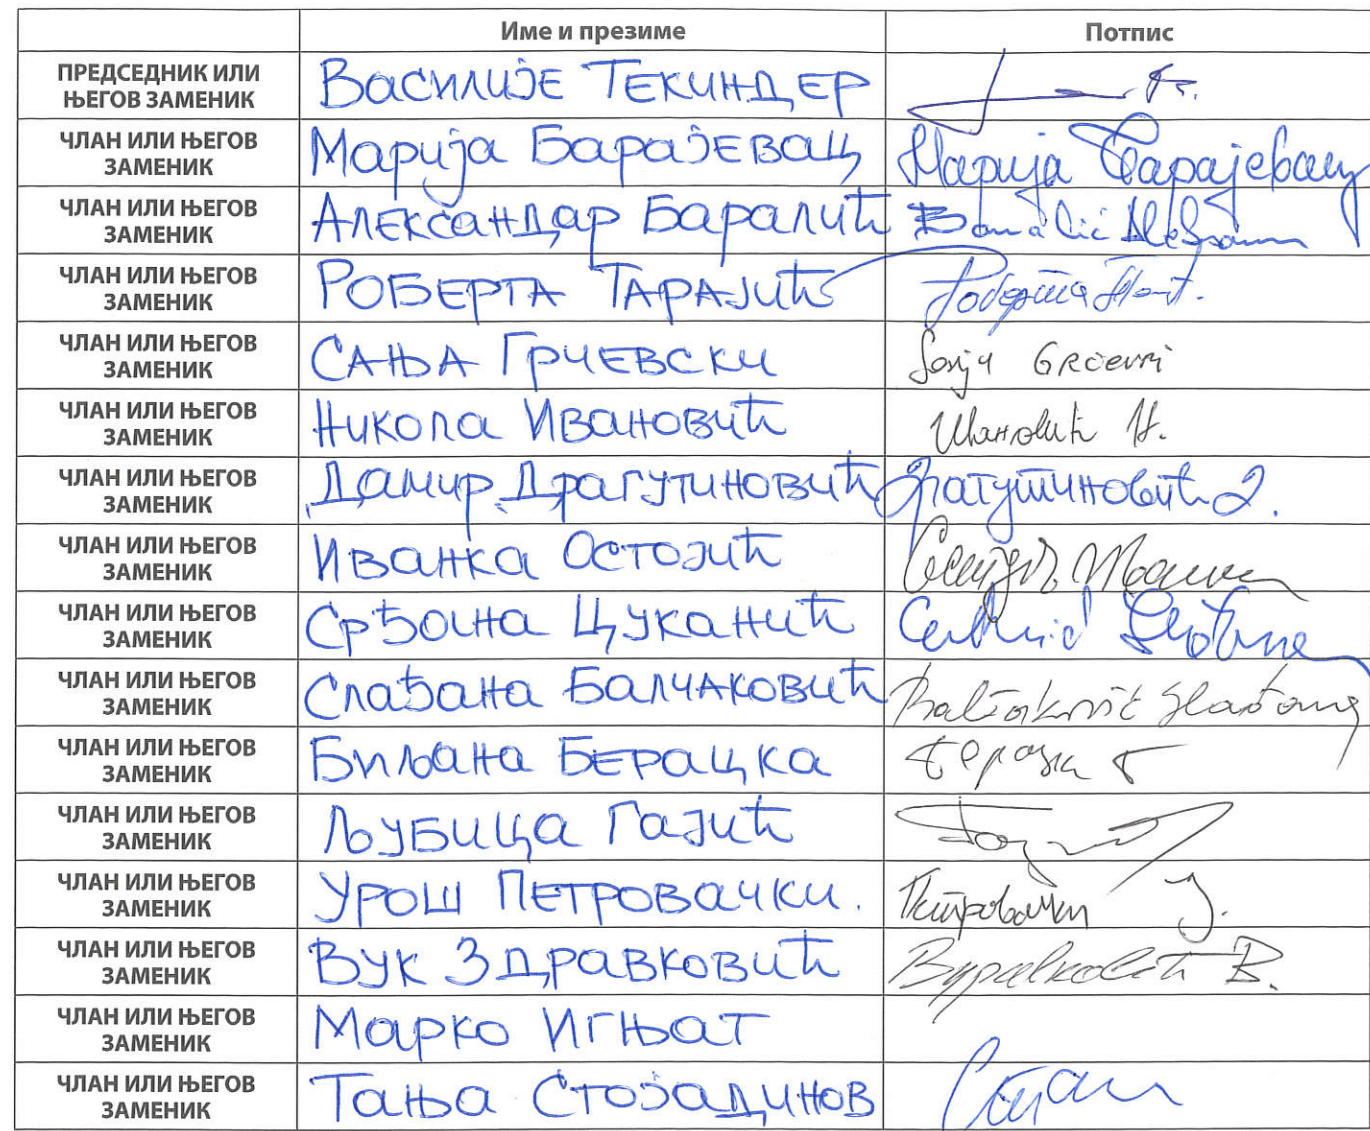 Име и презиме Потпис
ПРЕДСЕДНИК ИЛИ ЊЕГОВ ЗАМЕНИК Василије Текиндер
ЧЛАН ИЛИ ЊЕГОВ ЗАМЕНИК Марија Барајевац Марија Барајевац
ЧЛАН ИЛИ ЊЕГОВ ЗАМЕНИК Александар Баралић
ЧЛАН ИЛИ ЊЕГОВ ЗАМЕНИК РОБЕРТА ТАРАЈИЋ Роберта
ЧЛАН ИЛИ ЊЕГОВ ЗАМЕНИК САЊА ГРЧЕВСКИ
ЧЛАН ИЛИ ЊЕГОВ ЗАМЕНИК Никола Ивановић Ивановић Н.
ЧЛАН ИЛИ ЊЕГОВ ЗАМЕНИК Дамир Драгутиновић Драгутиновић Д.
ЧЛАН ИЛИ ЊЕГОВ ЗАМЕНИК Иванка Остојић
ЧЛАН ИЛИ ЊЕГОВ ЗАМЕНИК Срђана Цуканић
ЧЛАН ИЛИ ЊЕГОВ ЗАМЕНИК Слађана Балчаковић
ЧЛАН ИЛИ ЊЕГОВ ЗАМЕНИК Биљана Берацка
ЧЛАН ИЛИ ЊЕГОВ ЗАМЕНИК Љубица Гајић
ЧЛАН ИЛИ ЊЕГОВ ЗАМЕНИК Урош Петровачки. Петровачки У.
ЧЛАН ИЛИ ЊЕГОВ ЗАМЕНИК Вук Здравковић Здравковић В.
ЧЛАН ИЛИ ЊЕГОВ ЗАМЕНИК Марко Игњат
ЧЛАН ИЛИ ЊЕГОВ ЗАМЕНИК Тања Стојадинов